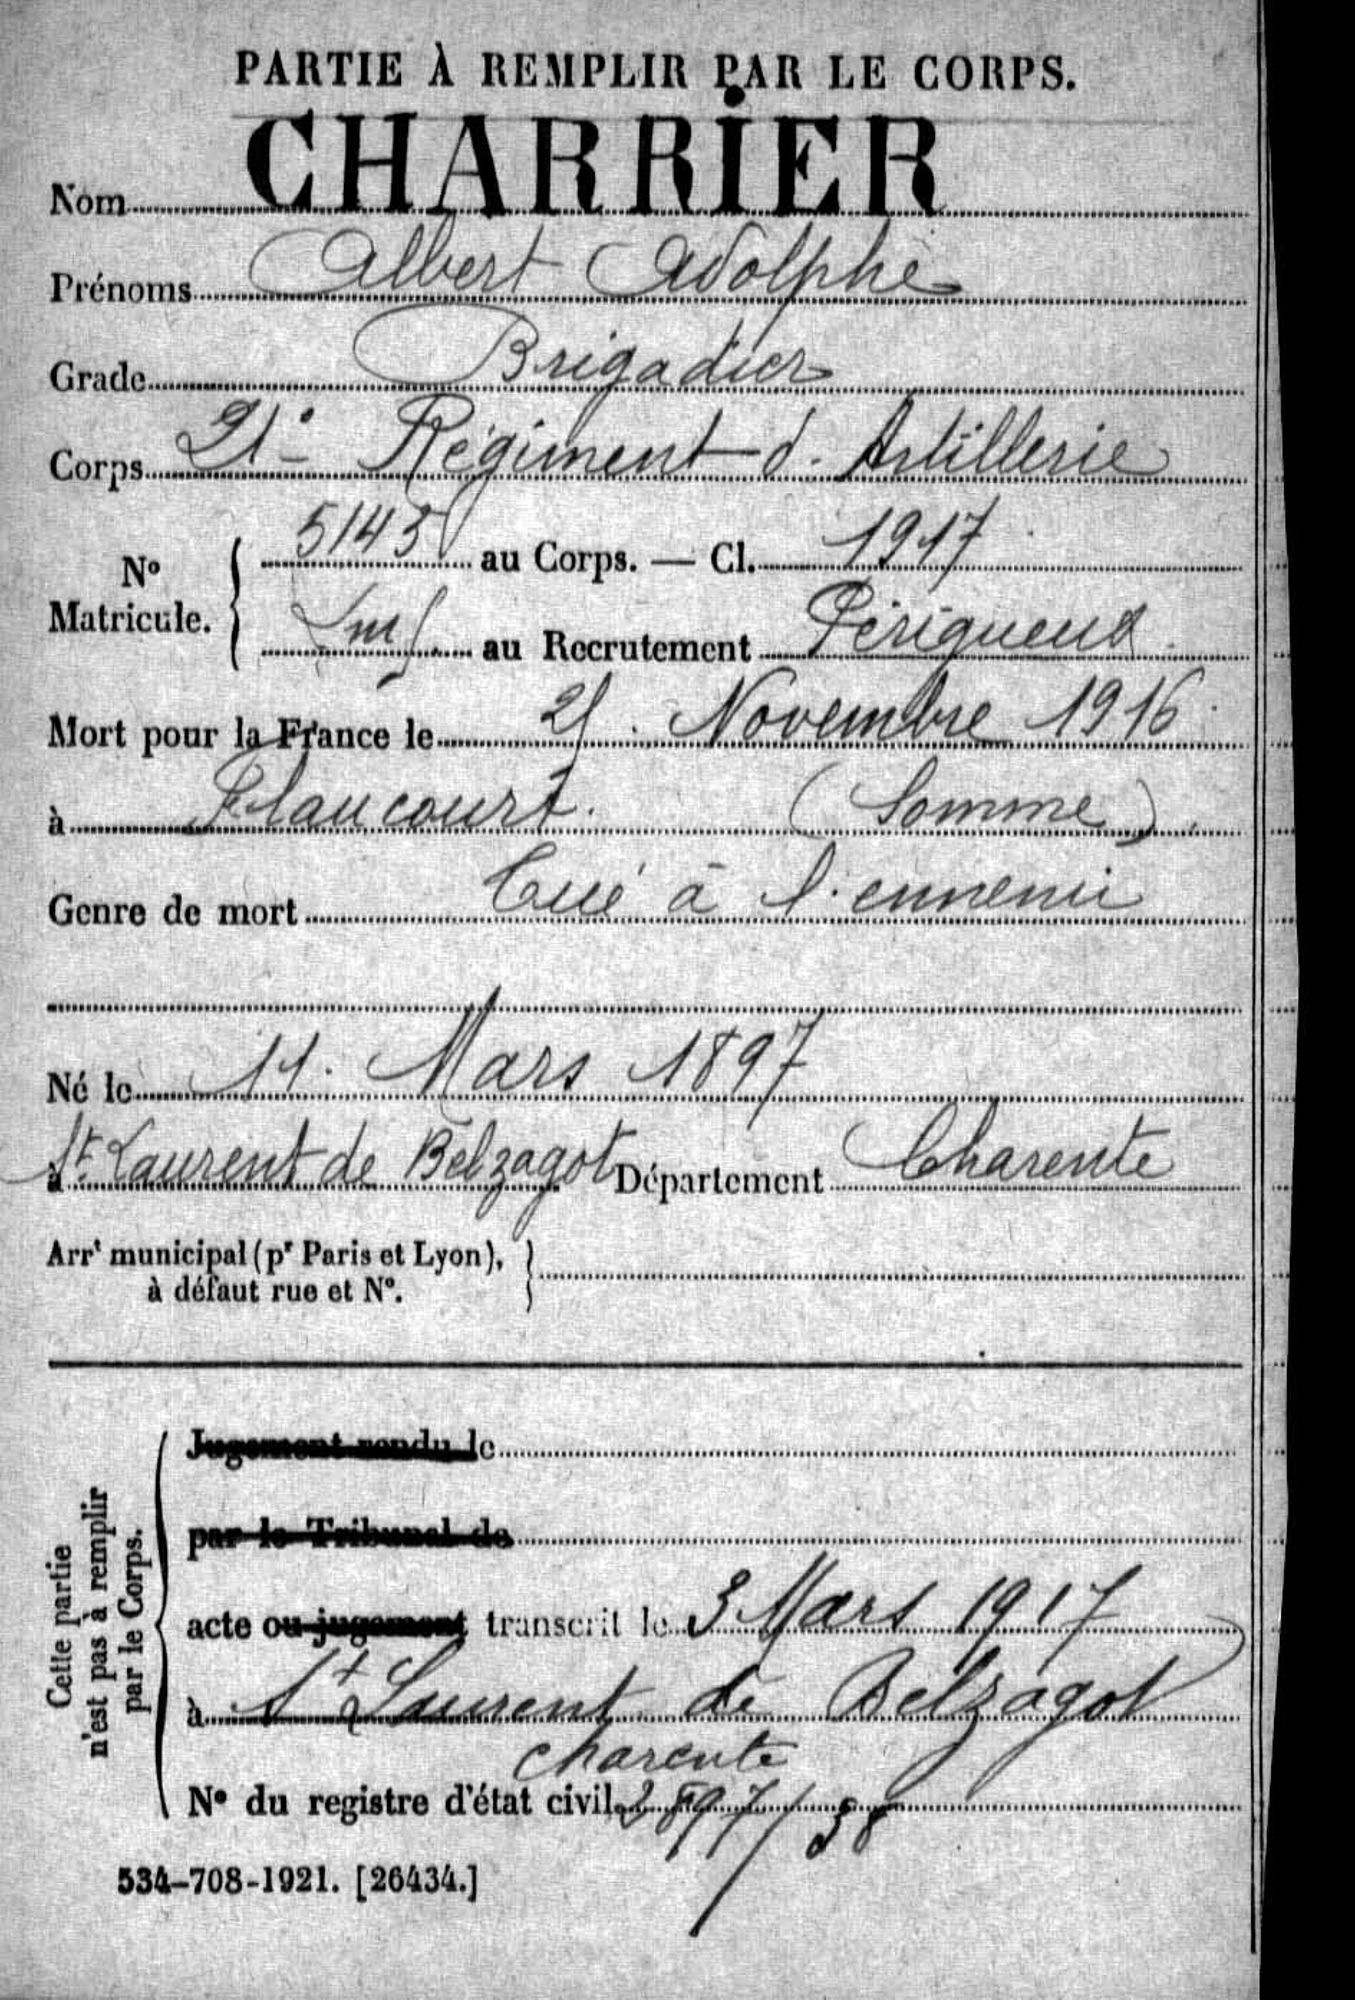 PARTIE À REMPLIR PAR LE CORPS.
Nom CHARRIER
Prénoms Albert Adolphe
Grade Brigadier
Corps 21e Régiment d'Artillerie
No Matricule. { 5145 au Corps. — Cl. 1917
au Recrutement Périgueux
Mort pour la France le 21 Novembre 1916
à Flaucourt. (Somme).
Genre de mort Tué à l'ennemi
Né le 11 Mars 1897
à St Laurent de Belzagot Département Charente
Arrt municipal (pr Paris et Lyon),
à défaut rue et No.
Cette partie
n'est pas à remplir
par le Corps.
Jugement rendu le
par le Tribunal de
acte ou jugement transcrit le 3 Mars 1917
à St Laurent de Belzagot
Charente
No du registre d'état civil 2897/38
534-708-1921. [26434.]